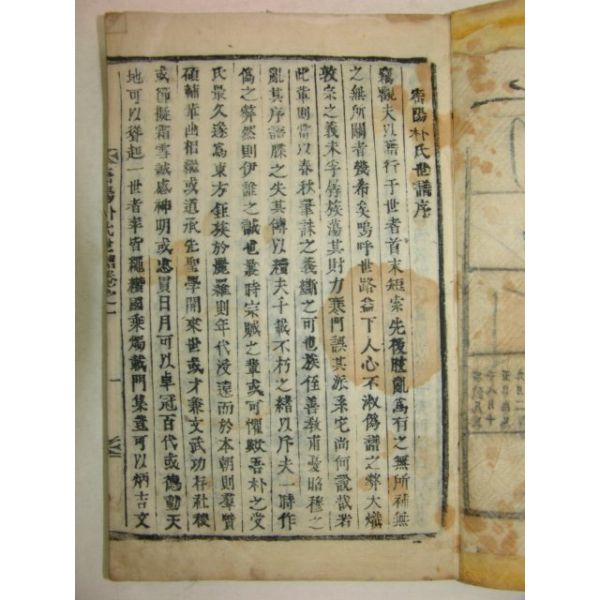 密陽朴氏世譜序
竊觀夫以善行于世者首末短索先後膛亂爲有之無所補無
之無所關者幾希矣嗚呼世路益下人心不淑僞譜之弊大熾
敦宗之義未孚簿簇蕩其財力寒門誤其派系宅尚何說哉若
此輩則當以春秋筆誅之義斷之可也族侄善敎甫憂昭穆之
亂其序語牒之失其傳以積夫千載不朽之緖以斥夫一時作
僞之弊然則伊誰之誠也曩時宗賊之輩或可懼歟吾朴之受
氏最久遂爲東方鉅族於羅麗則年代浸遠而於本朝則羣賢
碩輔華曲相繼或道承先聖學開來世或才兼文武功存社稷
或節凝霜雪誠感神明或忠貫日月可以卓冠百代或德動天
地可以聳起一世者莘皆繩襸國乘燭載門集豈可以炳吉文
密陽朴氏世譜卷之一
一